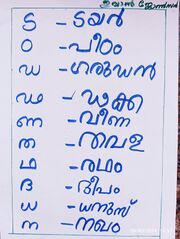 ട - ടയർ
ഠ - പീഠം
ഡ - ഗരുഡൻ
ഢ - ഢക്ക
ണ - വീണ
ത - തവള
ഥ - രഥം
ദ - ദീപം
ധ - ധനുസ്
ന - നഖം